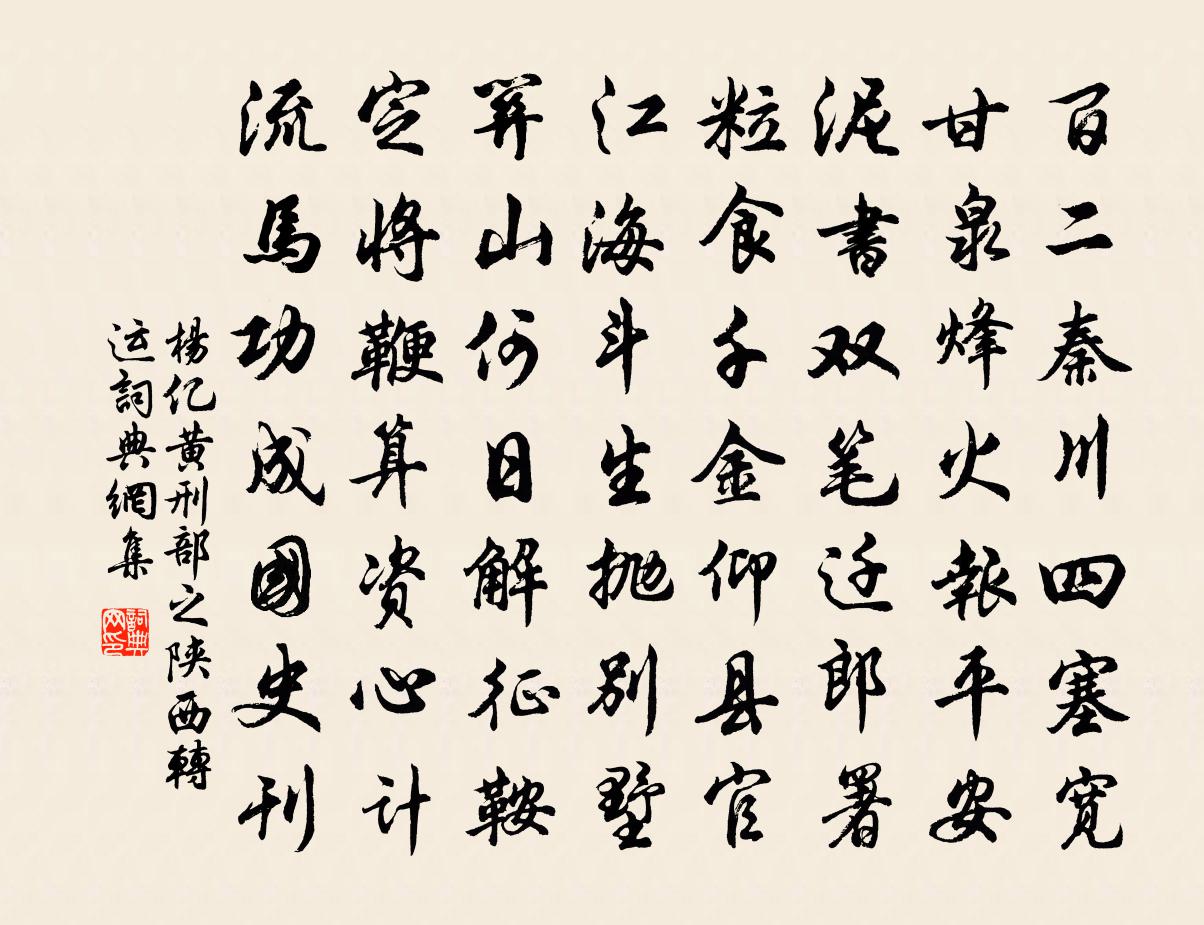 百二秦川四塞宽
甘泉烽火報平安
泥書双笔迁郎署
粒食千金仰县官
江海斗生抛别墅
关山何日解征鞍
定将鞭算资心计
流馬功成國史刊
楊亿黄刑部之陕西轉
运詞典網集
詞典
网印